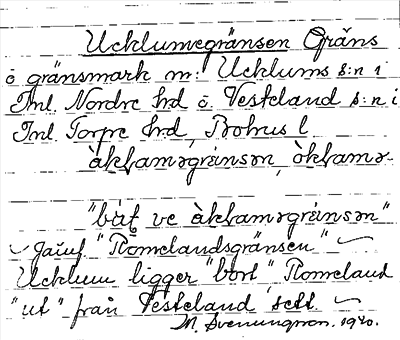 Ucklumegränsen Gräns
o gränsmark m: Ucklums s:n i
Inl. Nordre hrd o. Vesteland s:n i
Inl. Torpe hrd, Bohus l
àkḷaməgrȧnsən, òkḷamə-
"bȧt ve àkḷamərgrȧnsən"
Jämf "Romelandsgränsen"
Ucklum ligger "bort" Romeland
"ut" från Vesteland sett.
M. Svenungsson. 1920.